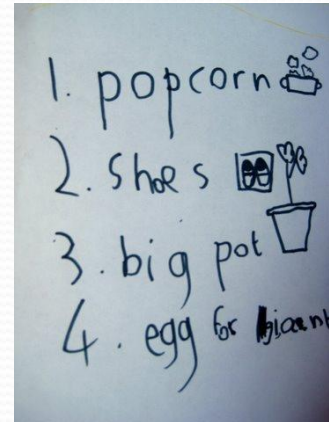 1. popcorn
2. shoes
3. big pot
4. egg for hiant